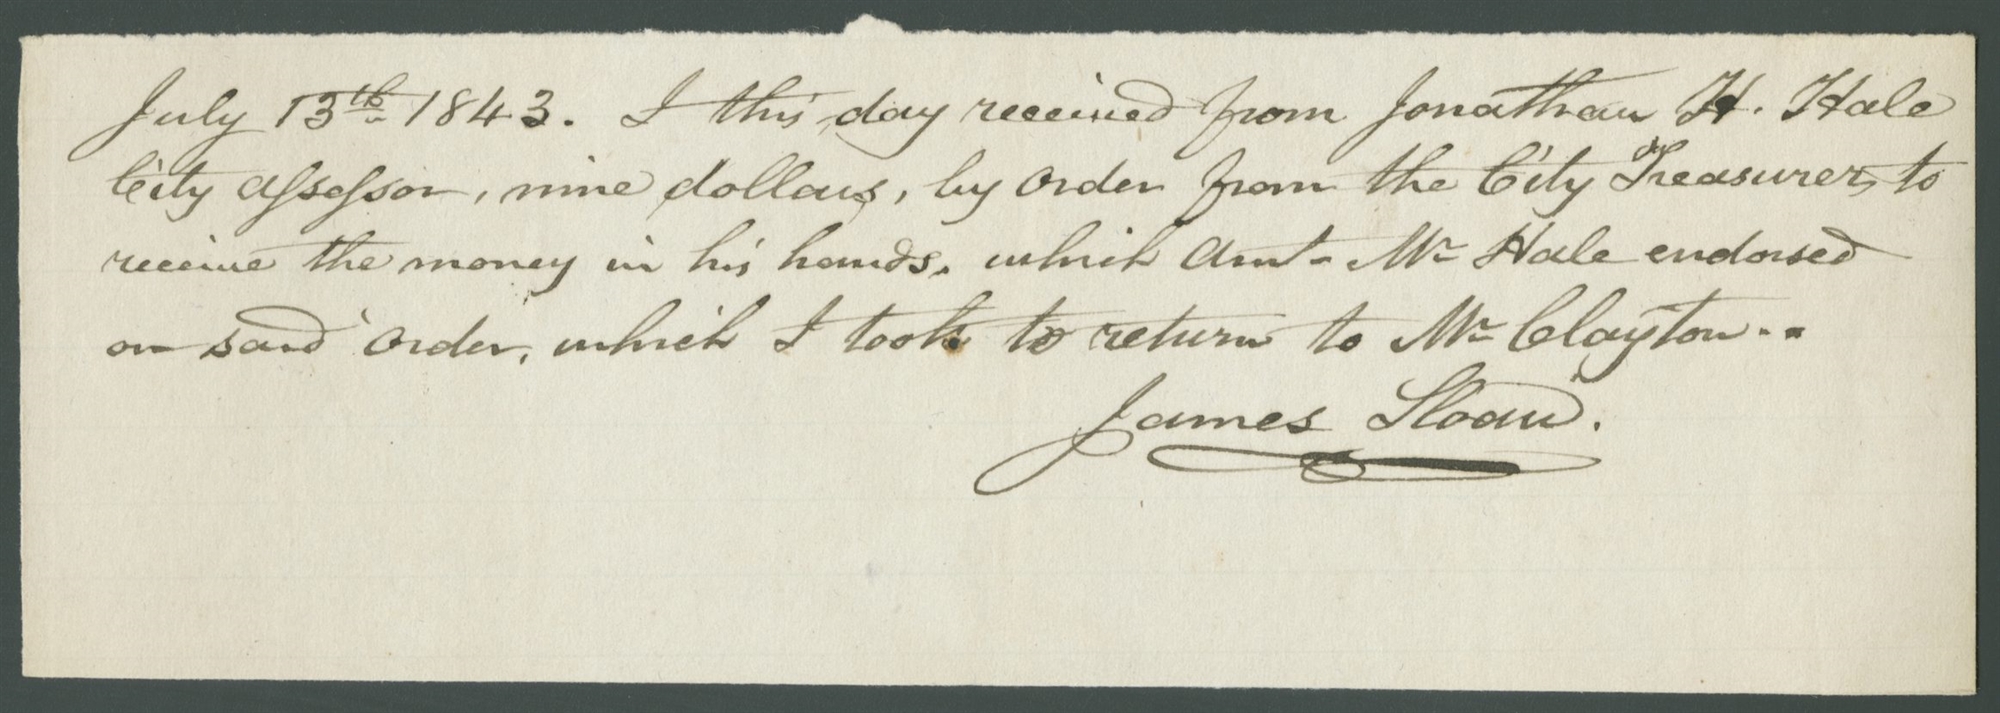 July 13th 1843. I this day received from Jonathan H. Hale
City assessor, nine dollars, by order from the City Treasurer, to
receive the money in his hands. which Amt. Mr Hale endorsed
on said order, which I took to return to Mr Clayton..
James Sloan.